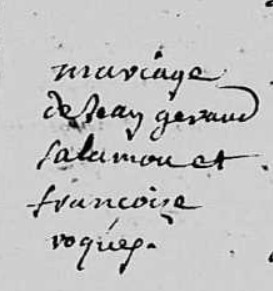 mariage
de Jean geraud
salamon et
francoise
roques.